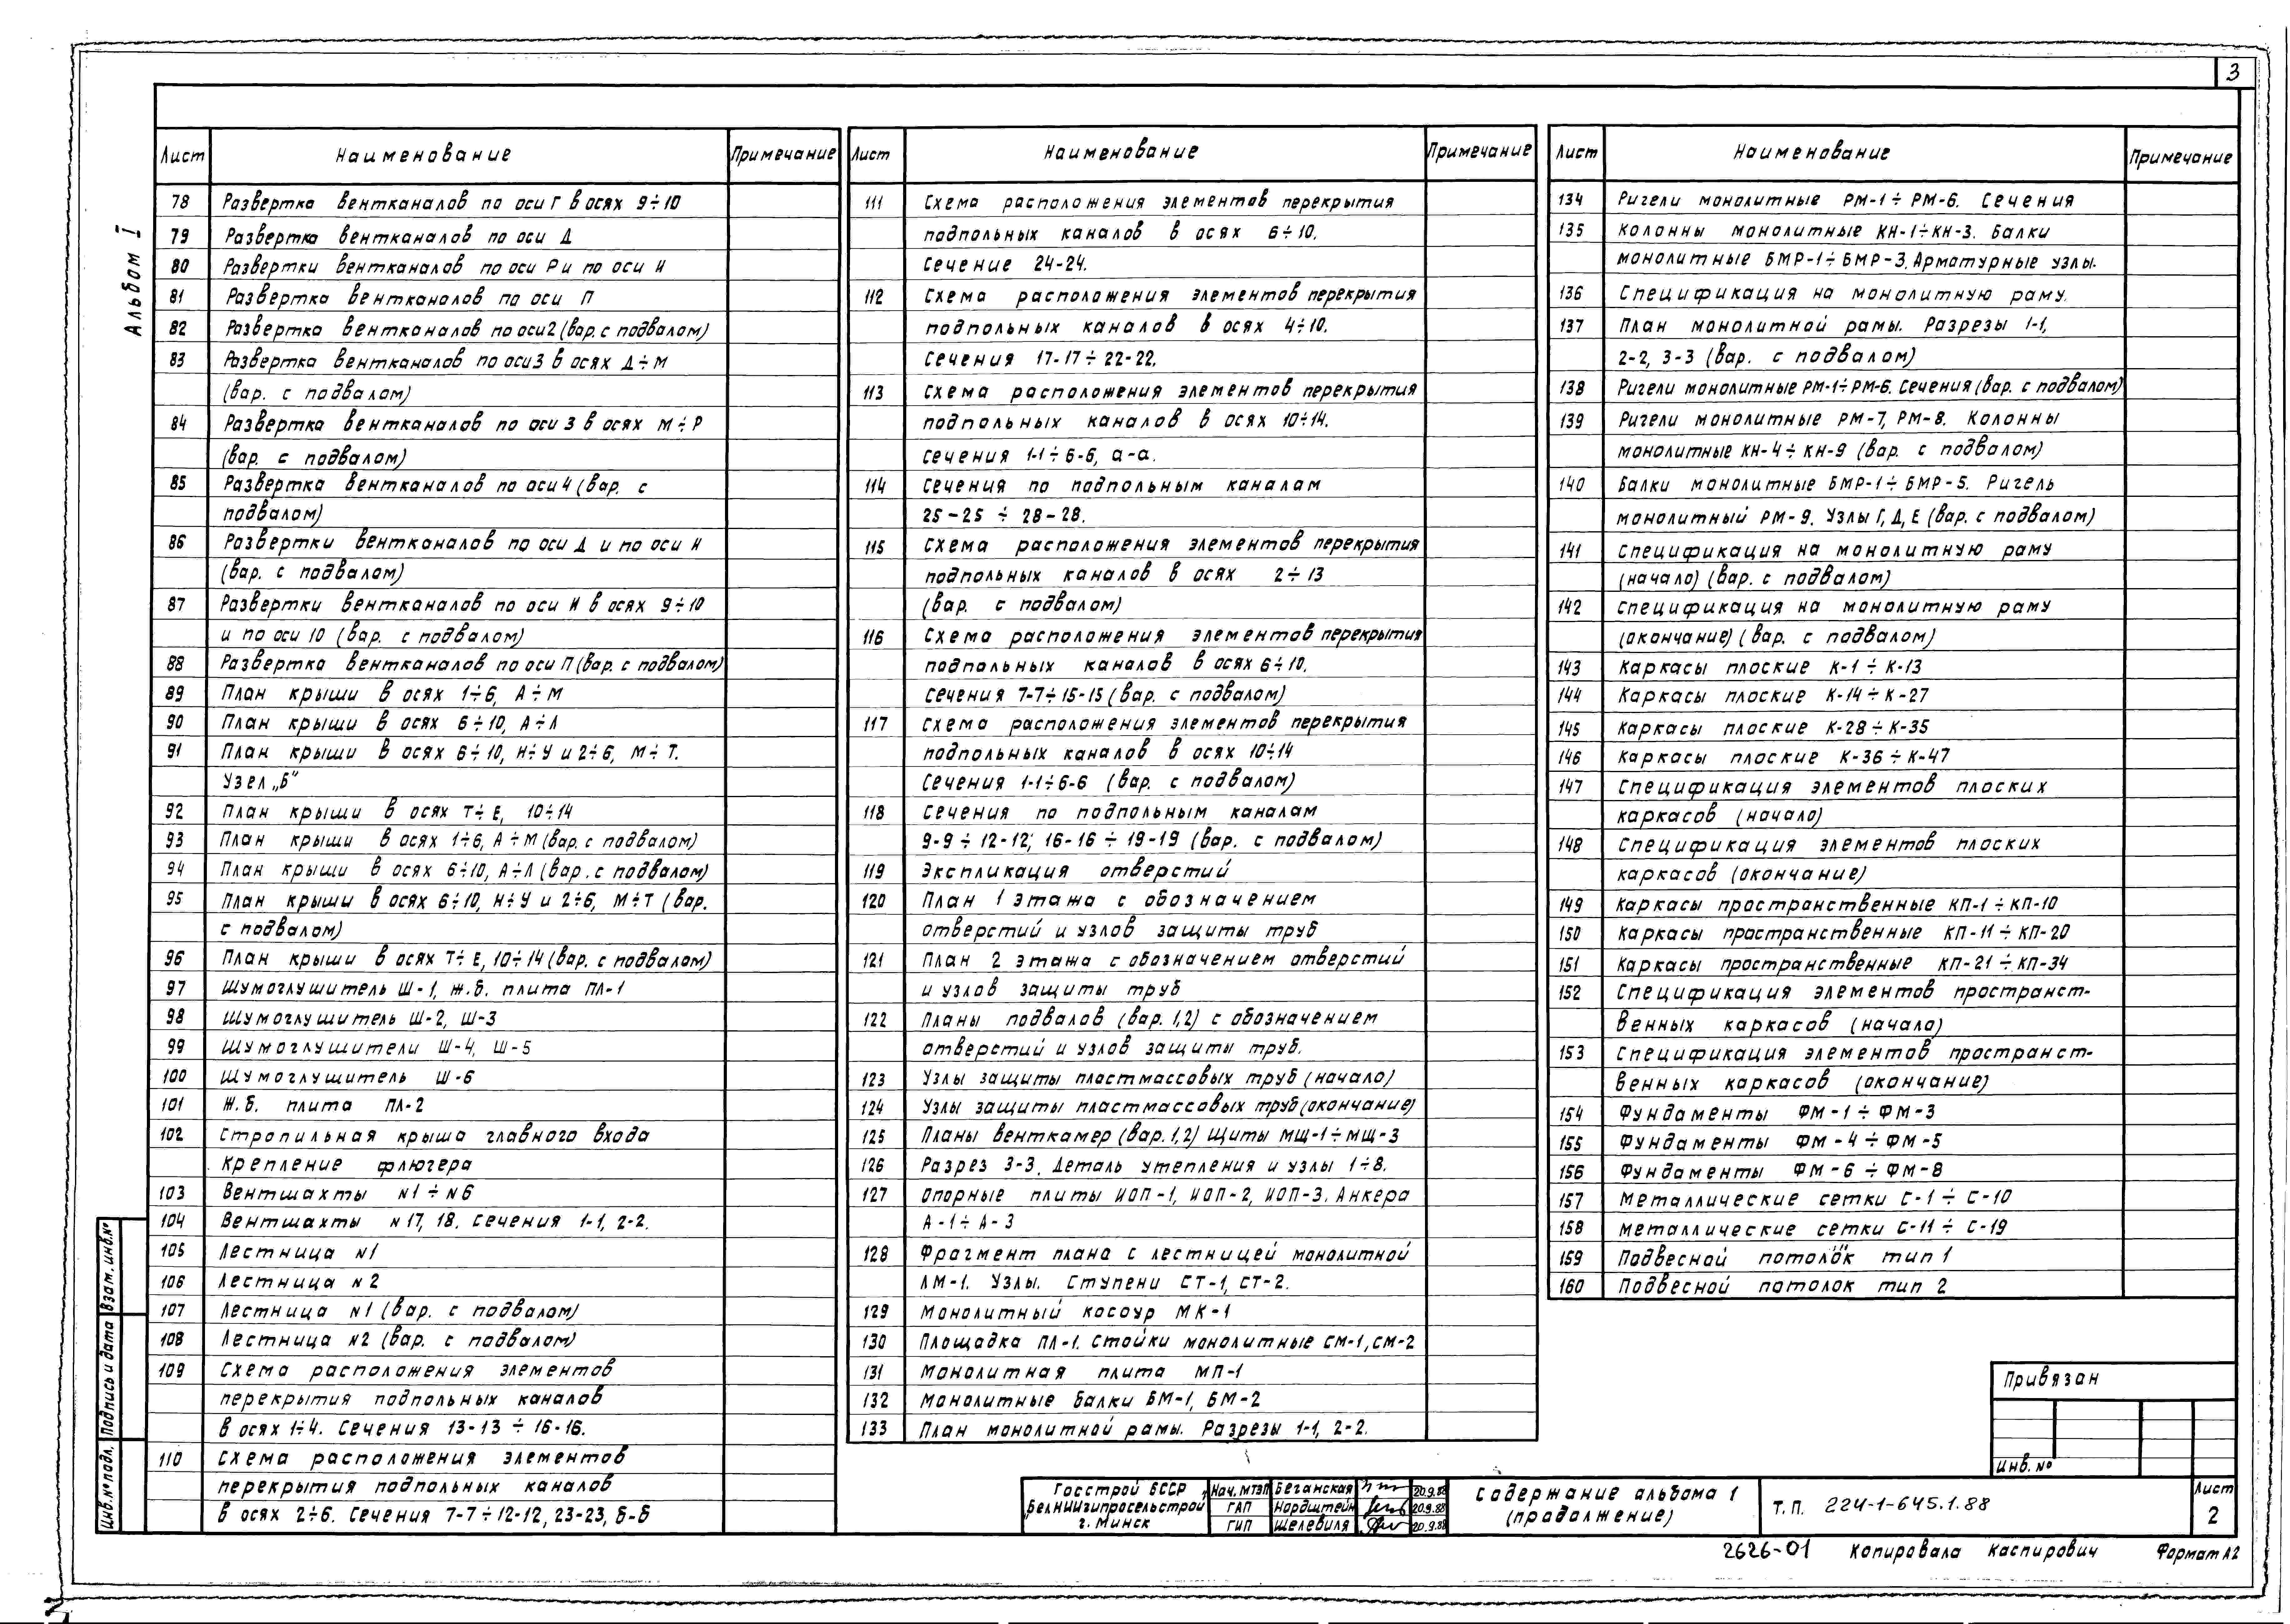 3
Альбом I
Лист Наименование Примечание
78 Развертка вентканалов по оси Г в осях 9÷10
79 Развертка вентканалов по оси Д
80 Развертки вентканалов по оси Р и по оси И
81 Развертка вентканалов по оси П
82 Развертка вентканалов по оси 2 (вар. с подвалом)
83 Развертка вентканалов по оси 3 в осях Д÷М
(вар. с подвалом)
84 Развертка вентканалов по оси 3 в осях М÷Р
(вар. с подвалом)
85 Развертка вентканалов по оси 4 (вар. с
подвалом)
86 Развертки вентканалов по оси Д и по оси И
(вар. с подвалом)
87 Развертки вентканалов по оси И в осях 9÷10
и по оси 10 (вар. с подвалом)
88 Развертка вентканалов по оси П (вар. с подвалом)
89 План крыши в осях 1÷6, А÷М
90 План крыши в осях 6÷10, А÷Л
91 План крыши в осях 6÷10, Н÷У и 2÷6, М÷Т.
Узел „Б"
92 План крыши в осях Т÷Е, 10÷14
93 План крыши в осях 1÷6, А÷М (вар. с подвалом)
94 План крыши в осях 6÷10, А÷Л (вар. с подвалом)
95 План крыши в осях 6÷10, Н÷У и 2÷6, М÷Т (вар.
с подвалом)
96 План крыши в осях Т÷Е, 10÷14 (вар. с подвалом)
97 Шумоглушитель Ш-1, ж.б. плита ПЛ-1
98 Шумоглушитель Ш-2, Ш-3
99 Шумоглушители Ш-4, Ш-5
100 Шумоглушитель Ш-6
101 Ж.б. плита ПЛ-2
102 Стропильная крыша главного входа
крепление флюгера
103 Вентшахты N1÷N6
104 Вентшахты N17, 18. Сечения 1-1, 2-2.
105 Лестница N1
106 Лестница N2
107 Лестница N1 (вар. с подвалом)
108 Лестница N2 (вар. с подвалом)
109 Схема расположения элементов
перекрытия подпольных каналов
в осях 1÷4. Сечения 13-13 ÷ 16-16.
110 Схема расположения элементов
перекрытия подпольных каналов
в осях 2÷6. Сечения 7-7÷12-12, 23-23, б-б
Лист Наименование Примечание
111 Схема расположения элементов перекрытия
подпольных каналов в осях 6÷10.
Сечение 24-24.
112 Схема расположения элементов перекрытия
подпольных каналов в осях 4÷10.
Сечения 17-17÷22-22.
113 Схема расположения элементов перекрытия
подпольных каналов в осях 10÷14.
сечения 1-1÷6-6, а-а.
114 Сечения по подпольным каналам
25-25 ÷ 28-28.
115 Схема расположения элементов перекрытия
подпольных каналов в осях 2÷13
(вар. с подвалом)
116 Схема расположения элементов перекрытия
подпольных каналов в осях 6÷10.
Сечения 7-7÷15-15 (вар. с подвалом)
117 Схема расположения элементов перекрытия
подпольных каналов в осях 10÷14
Сечения 1-1÷6-6 (вар. с подвалом)
118 Сечения по подпольным каналам
9-9 ÷ 12-12; 16-16 ÷ 19-19 (вар. с подвалом)
119 Экспликация отверстий
120 План 1 этажа с обозначением
отверстий и узлов защиты труб
121 План 2 этажа с обозначением отверстий
и узлов защиты труб
122 Планы подвалов (вар. 1,2) с обозначением
отверстий и узлов защиты труб.
123 Узлы защиты пластмассовых труб (начало)
124 Узлы защиты пластмассовых труб (окончание)
125 Планы венткамер (вар. 1,2) Щиты МЩ-1÷МЩ-3
126 Разрез 3-3. Деталь утепления и узлы 1÷8.
127 Опорные плиты ИОП-1, ИОП-2, ИОП-3. Анкера
А-1÷А-3
128 Фрагмент плана с лестницей монолитной
ЛМ-1. Узлы. Ступени СТ-1, СТ-2.
129 Монолитный косоур МК-1
130 Площадка ПЛ-1. Стойки монолитные СМ-1, СМ-2
131 Монолитная плита МП-1
132 Монолитные балки БМ-1, БМ-2
133 План монолитной рамы. Разрезы 1-1, 2-2.
Лист Наименование Примечание
134 Ригели монолитные РМ-1÷РМ-6. Сечения
135 Колонны монолитные КН-1÷КН-3. Балки
монолитные БМР-1÷БМР-3. Арматурные узлы.
136 Спецификация на монолитную раму.
137 План монолитной рамы. Разрезы 1-1,
2-2, 3-3 (вар. с подвалом)
138 Ригели монолитные РМ-1÷РМ-6. Сечения (вар. с подвалом)
139 Ригели монолитные РМ-7, РМ-8. Колонны
монолитные КН-4÷КН-9 (вар. с подвалом)
140 Балки монолитные БМР-1÷БМР-5. Ригель
монолитный РМ-9. Узлы Г, Д, Е (вар. с подвалом)
141 Спецификация на монолитную раму
(начало) (вар. с подвалом)
142 Спецификация на монолитную раму
(окончание) (вар. с подвалом)
143 Каркасы плоские К-1÷К-13
144 Каркасы плоские К-14÷К-27
145 Каркасы плоские К-28÷К-35
146 Каркасы плоские К-36÷К-47
147 Спецификация элементов плоских
каркасов (начало)
148 Спецификация элементов плоских
каркасов (окончание)
149 Каркасы пространственные КП-1÷КП-10
150 Каркасы пространственные КП-11÷КП-20
151 Каркасы пространственные КП-21÷КП-34
152 Спецификация элементов пространст-
венных каркасов (начало)
153 Спецификация элементов пространст-
венных каркасов (окончание)
154 Фундаменты ФМ-1÷ФМ-3
155 Фундаменты ФМ-4÷ФМ-5
156 Фундаменты ФМ-6÷ФМ-8
157 Металлические сетки С-1÷С-10
158 Металлические сетки С-11÷С-19
159 Подвесной потолок тип 1
160 Подвесной потолок тип 2
Привязан
Инв. №
Госстрой БССР
Белниигипросельстрой
г. Минск
Нач. МТЭП Беганская 20.9.88
ГАП Нордштейн 20.9.88
ГИП Шелевиля 20.9.88
Содержание альбома 1
(продолжение)
Т.П. 224-1-645.1.88
Лист
2
2626-01 Копировала Каспирович Формат А2
Взам. инв. №
Подпись и дата
Инв. № подл.